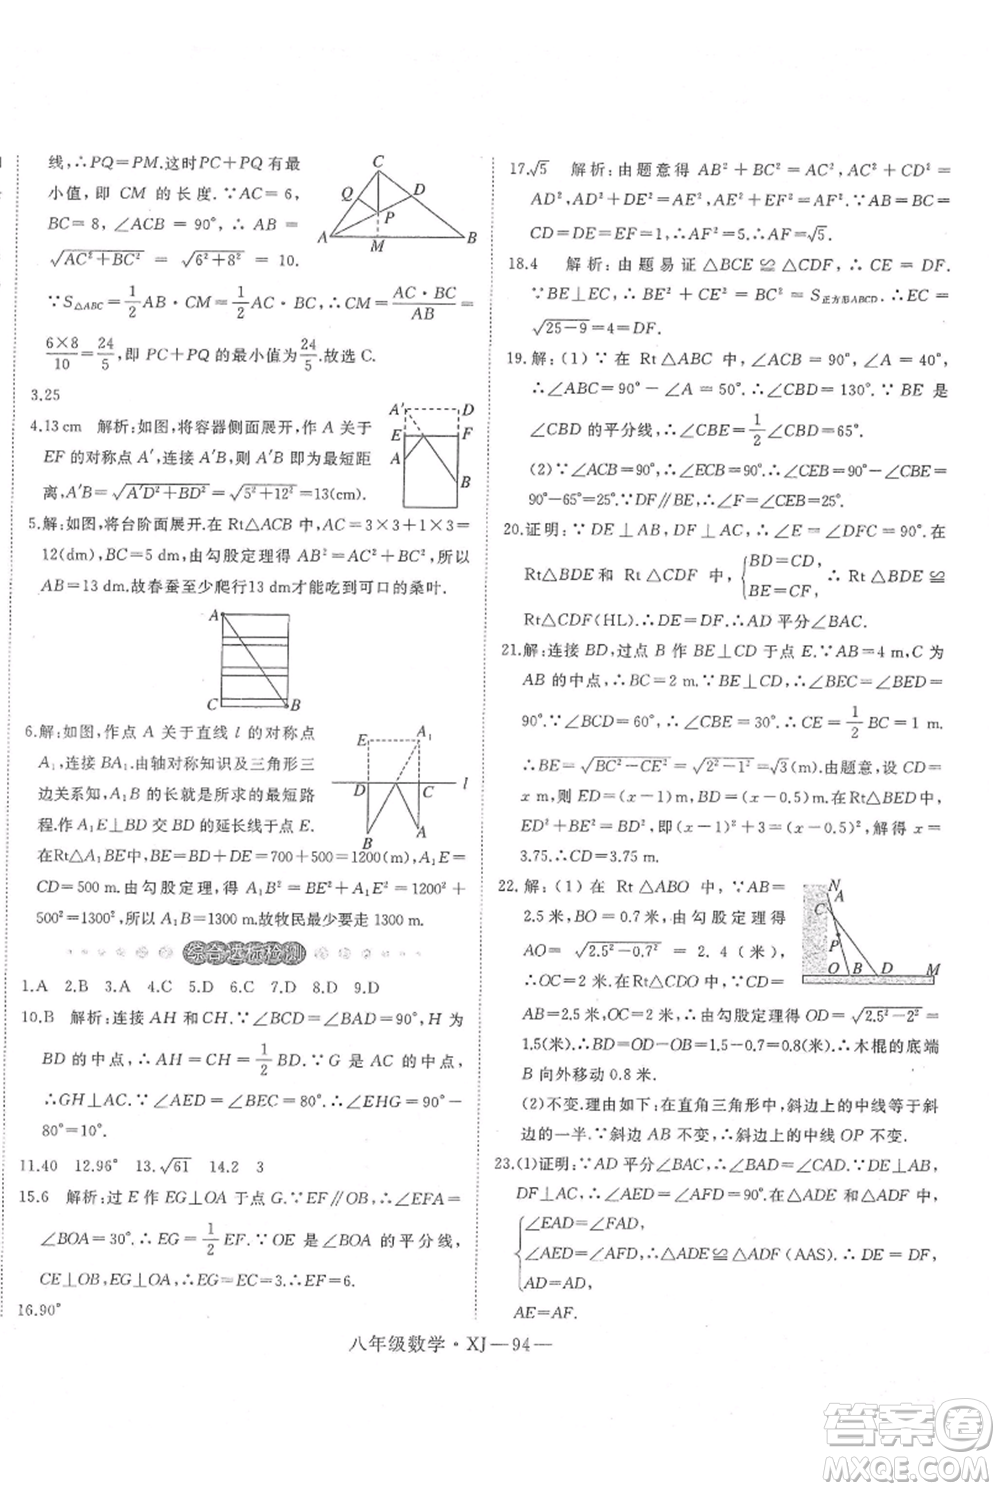 线,∴PQ=PM.这时PC+PQ有最
小值,即 CM 的长度.∵AC=6,
BC=8,∠ACB=90°,∴AB=
√(AC²+BC²) = √(6²+8²) = 10.
∵S△ABC=1/2 AB·CM=1/2 AC·BC,∴CM=AC·BC/AB=
6×8/10=24/5,即 PC+PQ 的最小值为24/5.故选 C.
C
Q
D
P
A
M
B
3.25
4.13 cm 解析:如图,将容器侧面展开,作 A 关于
EF 的对称点 A′,连接 A′B,则 A′B 即为最短距
离,A′B=√(A′D²+BD²)=√(5²+12²)=13(cm).
A′
D
E
F
A
B
5.解:如图,将台阶面展开.在 Rt△ACB 中,AC=3×3+1×3=
12(dm),BC=5 dm,由勾股定理得 AB²=AC²+BC²,所以
AB=13 dm.故春蚕至少爬行13 dm才能吃到可口的桑叶.
A
C
B
6.解:如图,作点 A 关于直线 l 的对称点
A₁,连接 BA₁.由轴对称知识及三角形三
边关系知,A₁B 就是所求的最短路
程.作 A₁E⊥BD 交 BD 的延长线于点 E.
在Rt△A₁BE中,BE=BD+DE=700+500=1200(m),A₁E=
CD=500 m.由勾股定理,得 A₁B²=BE²+A₁E²=1200²+
500²=1300²,所以 A₁B=1300 m.故牧民最少要走 1300 m.
E
A₁
D
C
l
B
A
综合达标检测
1.A 2.B 3.A 4.C 5.D 6.C 7.B 8.D 9.D
10.B 解析:连接 AH 和 CH.∵∠BCD=∠BAD=90°,H 为
BD 的中点,∴AH=CH=1/2 BD.∵G 是 AC 的中点,
∴GH⊥AC.∵∠AED=∠BEC=80°,∴∠EHG=90°-
80°=10°.
11.40 12.96° 13.√61 14.2 3
15.6 解析:过 E 作 EG⊥OA 于点 G.∵EF∥OB,∴∠EFA=
∠BOA=30°.∴EG=1/2 EF.∵OE 是∠BOA 的平分线,
CE⊥OB,EG⊥OA,∴EG=EC=3.∴EF=6.
16.90°
17.√5 解析:由题意得 AB²+BC²=AC²,AC²+CD²=
AD²,AD²+DE²=AE²,AE²+EF²=AF².∵AB=BC=
CD=DE=EF=1,∴AF²=5.∴AF=√5.
18.4 解析:由题易证△BCE≌△CDF,∴CE=DF.
∵BE⊥EC,∴BE²+CE²=BC²=S正方形ABCD.∴EC=
√(25-9)=4=DF.
19.解:(1)∵在 Rt△ABC 中,∠ACB=90°,∠A=40°,
∴∠ABC=90°-∠A=50°,∴∠CBD=130°.∵BE 是
∠CBD 的平分线,∴∠CBE=1/2∠CBD=65°.
(2)∵∠ACB=90°,∠CBE=65°,∴∠CEB=
90°-65°=25°.∵DF∥BE,∴∠F=∠CEB=25°.
20.证明:∵DE⊥AB,DF⊥AC,∴∠E=∠DFC=90°.在
Rt△BDE 和 Rt△CDF 中,{BD=CD, BE=CF, ∴Rt△BDE≌
Rt△CDF(HL).∴DE=DF.∴AD 平分∠BAC.
21.解:连接 BD,过点 B 作 BE⊥CD 于点 E.∵AB=4 m,C 为
AB 的中点,∴BC=2 m.∵BE⊥CD,∴∠BEC=∠BED=
90°.∵∠BCD=60°,∴∠CBE=30°.∴CE=1/2 BC=1 m.
∴BE=√(BC²-CE²)=√(2²-1²)=√3(m).由题意,设 CD=
x m,则 BD=ED=(x-1)m.在Rt△BED中,BE²+
ED²=BD²,即(x-1)²+3=(5-x)²,解得x=
3.75.∴CD=3.75 m.
22.解:(1)在 Rt△ABO 中,∵AB=
2.5米,BO=0.7米,由勾股定理得
AO=√(2.5²-0.7²)=2.4(米),
∴OC=2米.在Rt△CDO中,CD=
AB=2.5米,由勾股定理得 OD=√(2.5²-2²)=
1.5(米).∴BD=OD-OB=1.5-0.7=0.8(米).∴木棍的底端
B 向外移动0.8米.
(2)不变.理由如下:在直角三角形中,斜边上的中线等于斜
边的一半.∵斜边 AB 不变,∴斜边上的中线 OP 不变.
N
A
C
P
O
B
D
M
23.(1)证明:∵AD 平分∠BAC,∴∠BAD=∠CAD.∵DE⊥AB,
DF⊥AC,∴∠AED=∠AFD=90°.在△ADE 和△ADF 中,
{∠EAD=∠FAD,
∠AED=∠AFD,∴△ADE≌△ADF(AAS).∴DE=DF,
AD=AD,
AE=AF.
八年级数学·XJ—94—
答案卷
MXQE.COM